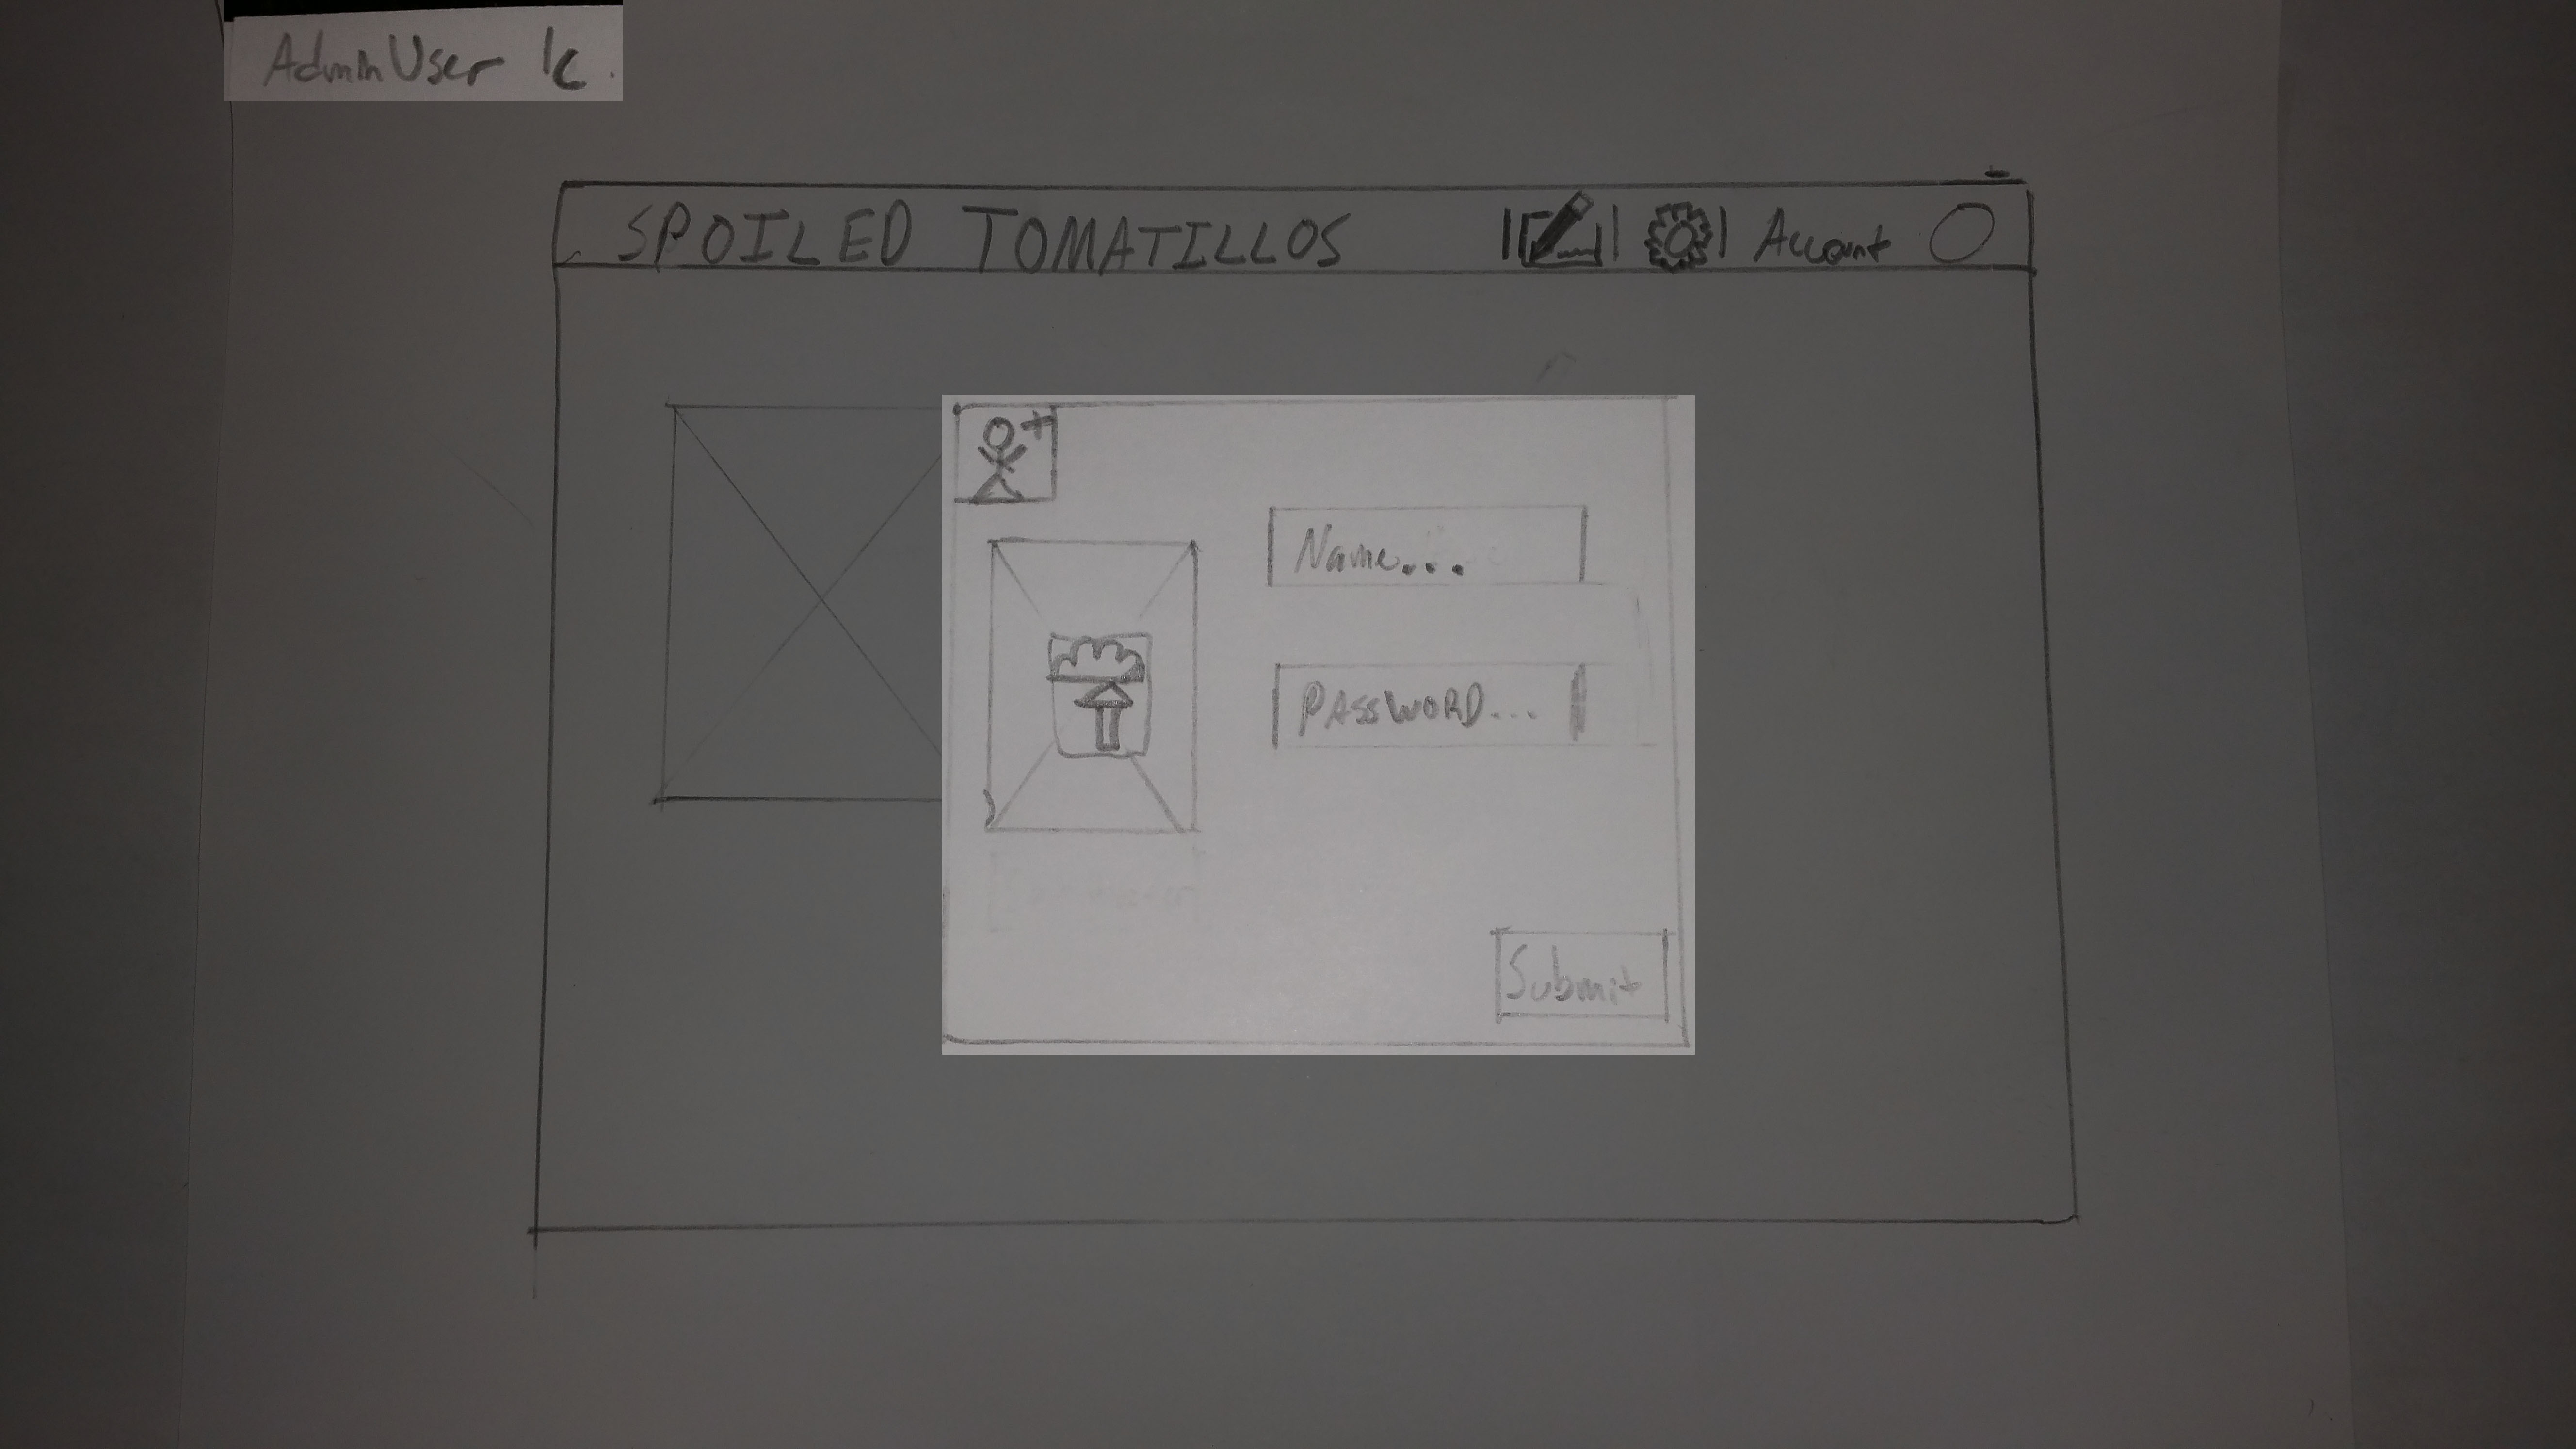 AdminUser 1c.
SPOILED TOMATILLOS
Account
Name...
PASSWORD...
Submit